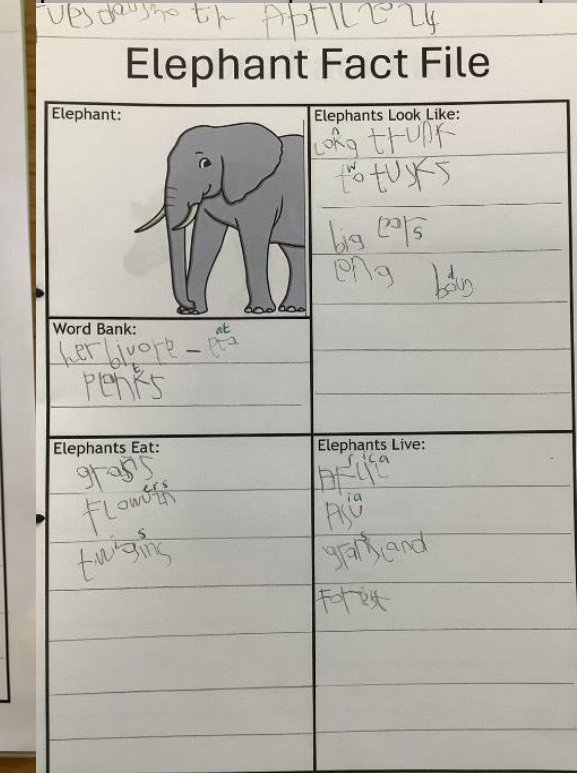 April 2024
Elephant Fact File
Elephant:
Elephants Look Like:
long trunk
two tusks
big ears
long body
Word Bank:
herbivore - eat
plants
Elephants Eat:
grass
flowers
twigs
Elephants Live:
Africa
Asia
grassland
Forist